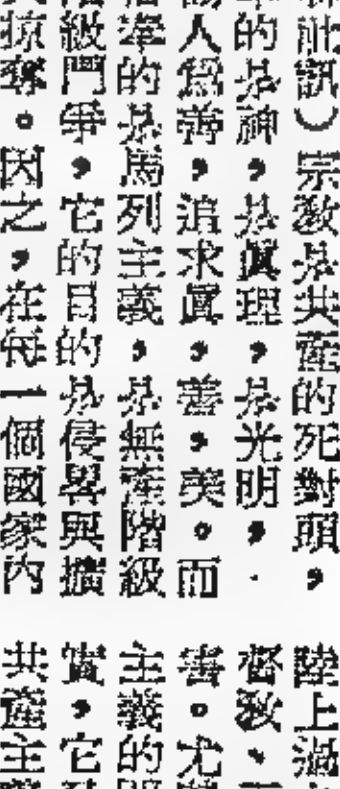 訊）宗教是共產的死對頭，
的是神，是眞理，是光明，
人爲善，追求眞，善，美。而
奉的是馬列主義，是無產階級
級鬥爭，它的目的是侵畧與擴
掠奪。因之，在每一個國家內
陸上過
督教、
害。尤
主義的
實，它
共產主